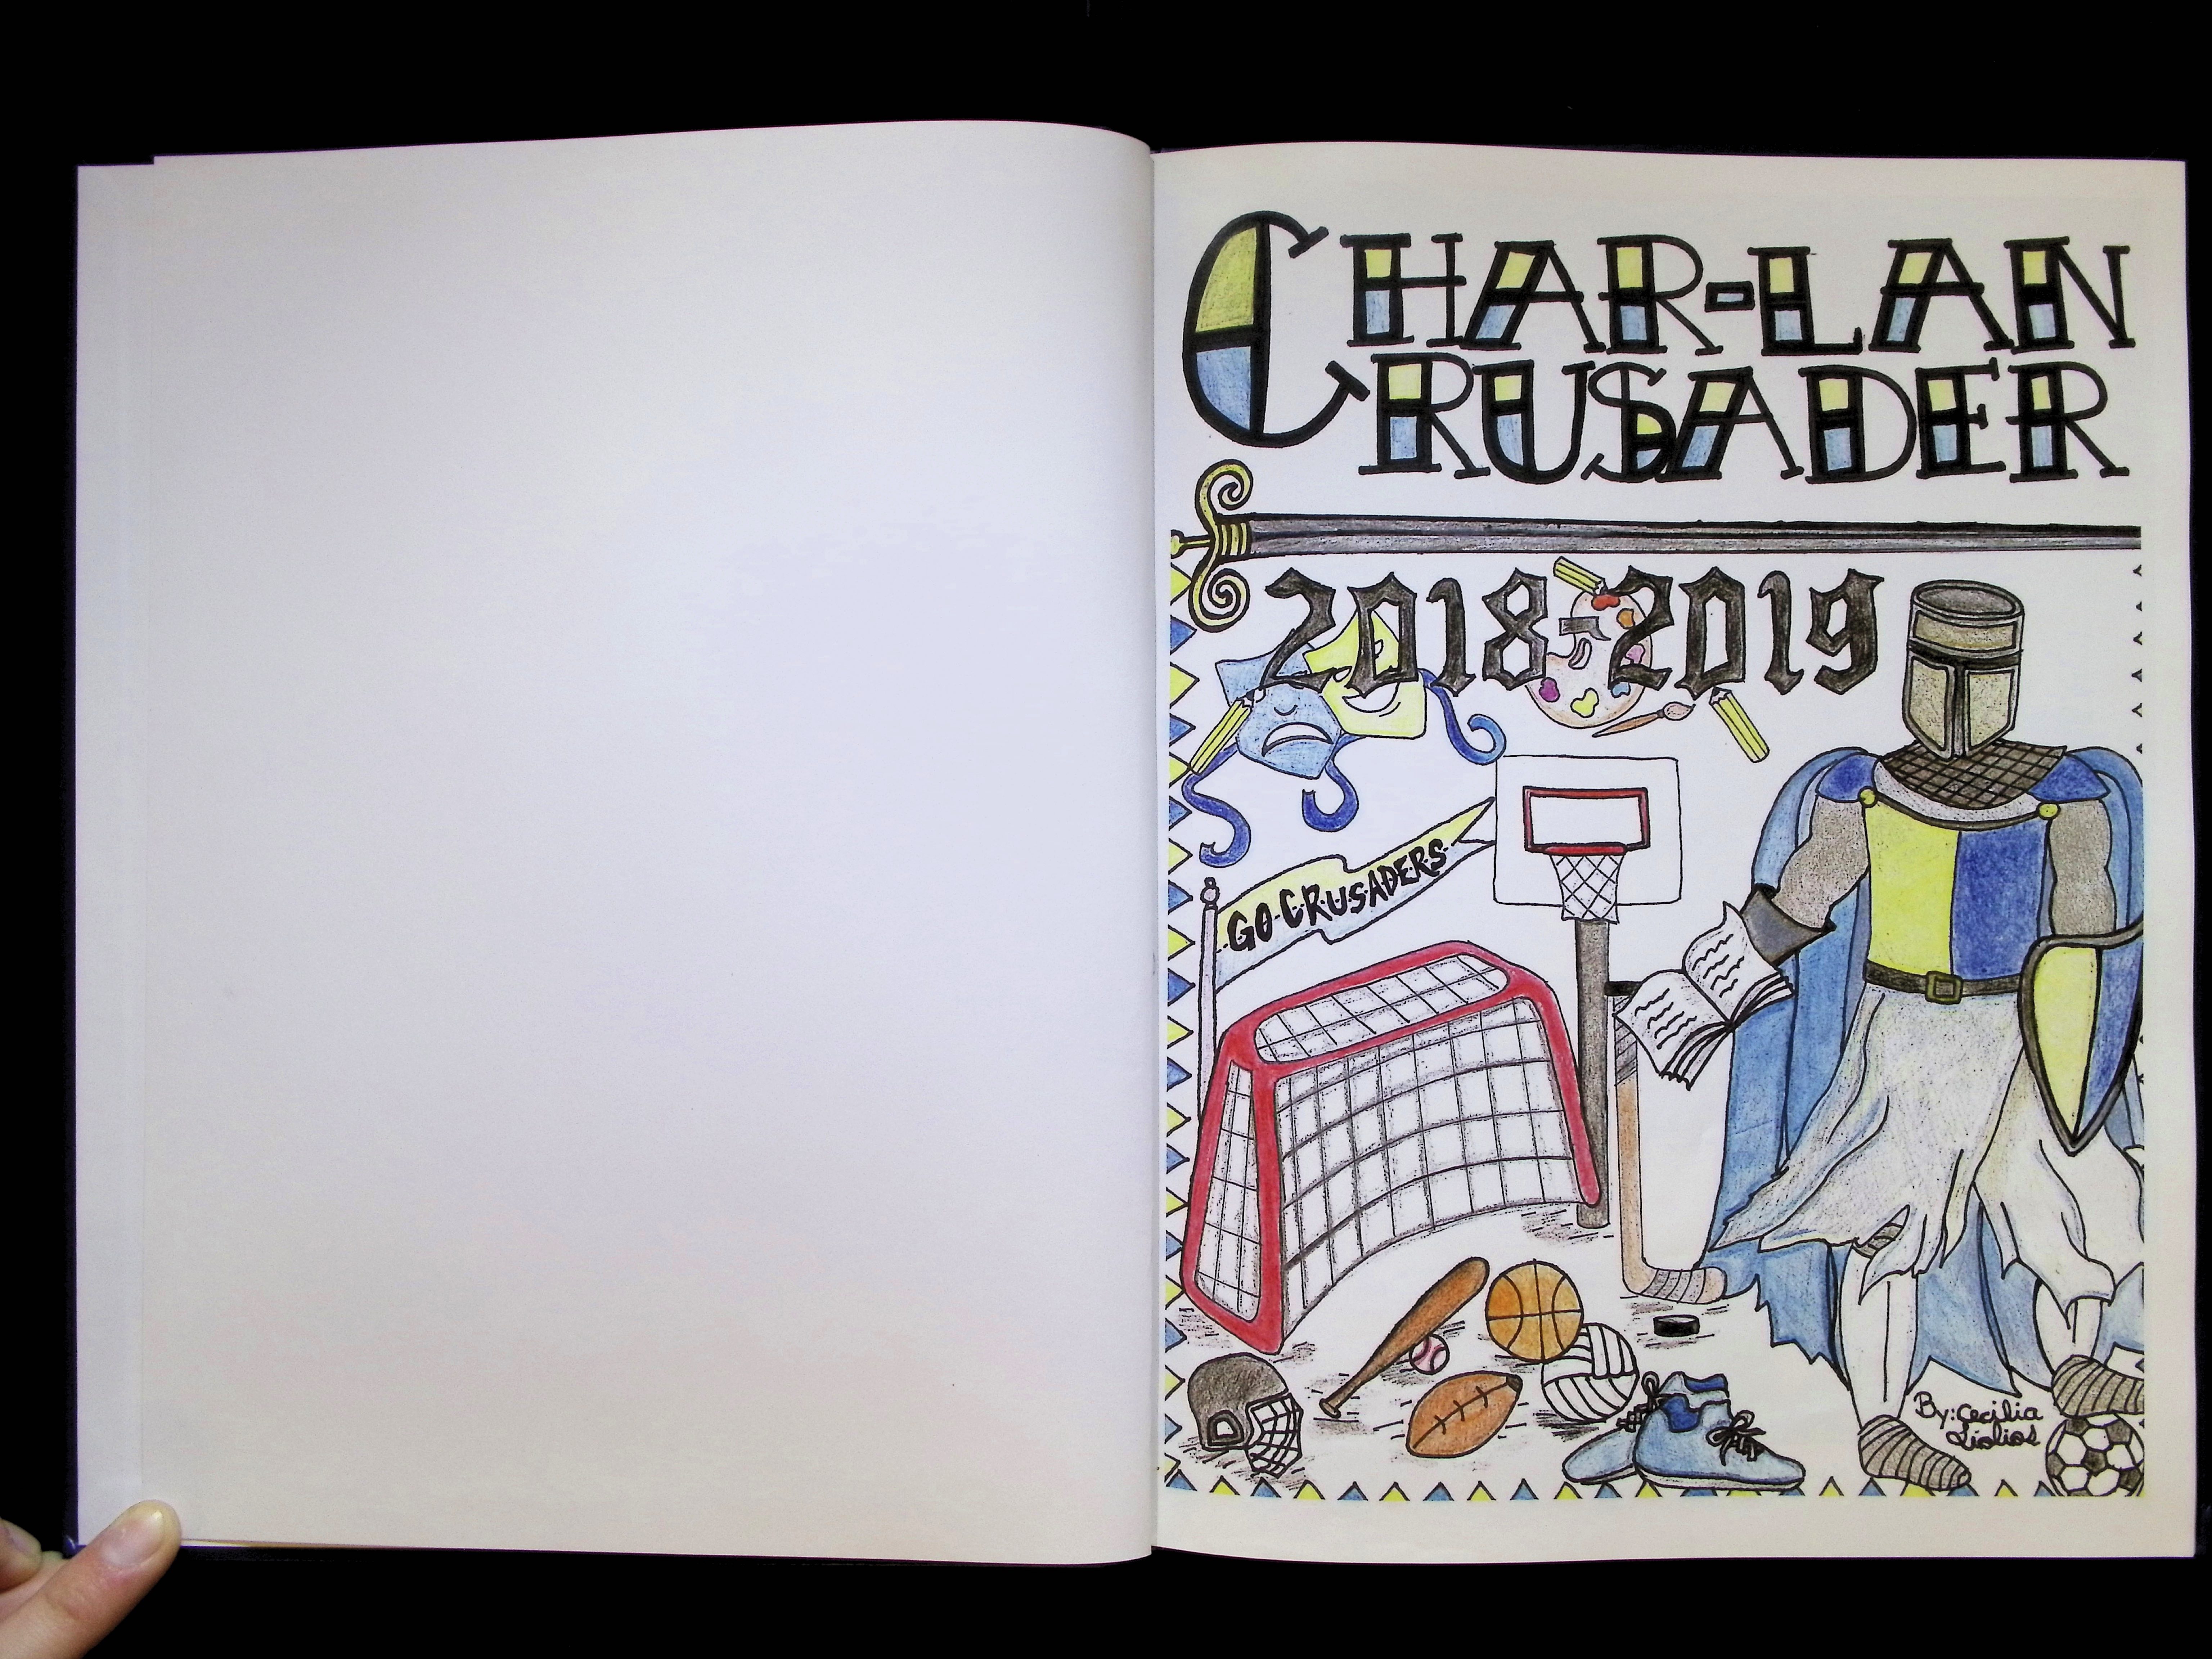 CHAR-LAN
CRUSADER
2018-2019
GO CRUSADERS
By: Cecilia
Liolios